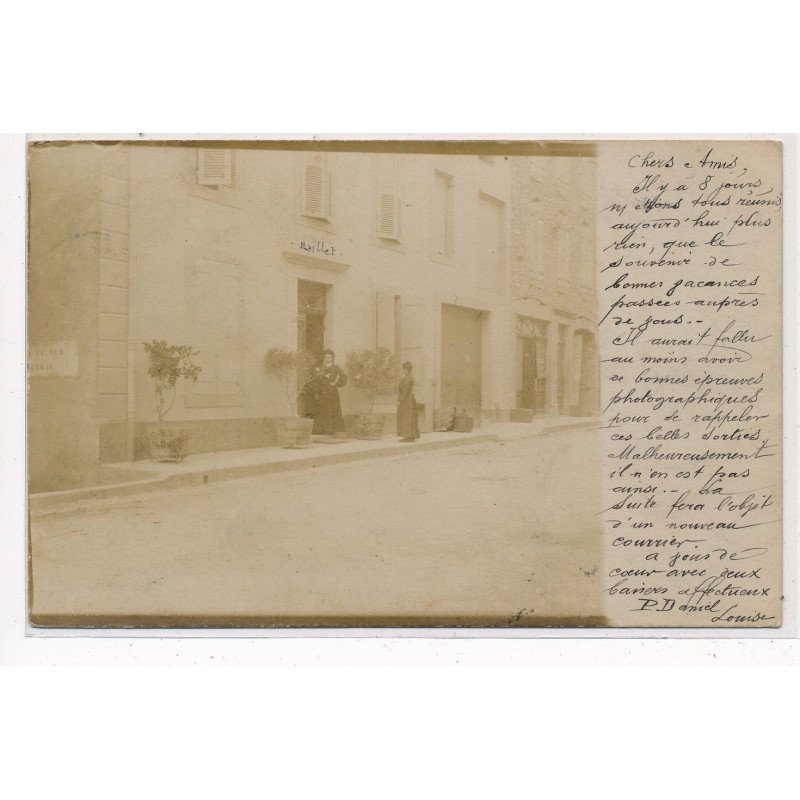 Maillet
Chers Amis,
Il y a 8 jours,
nous tous réunis,
aujourd'hui plus
rien, que le
souvenir de
bonnes vacances
passées auprès
de vous.-
Il aurait fallu
au moins avoir
de bonnes épreuves
photographiques
pour se rappeler
ces belles sorties.
Malheureusement
il n'en est pas
ainsi.- La
suite fera l'objet
d'un nouveau
courrier
a vous de
cœur avec deux
baisers affectueux
P. Daniel
Louise